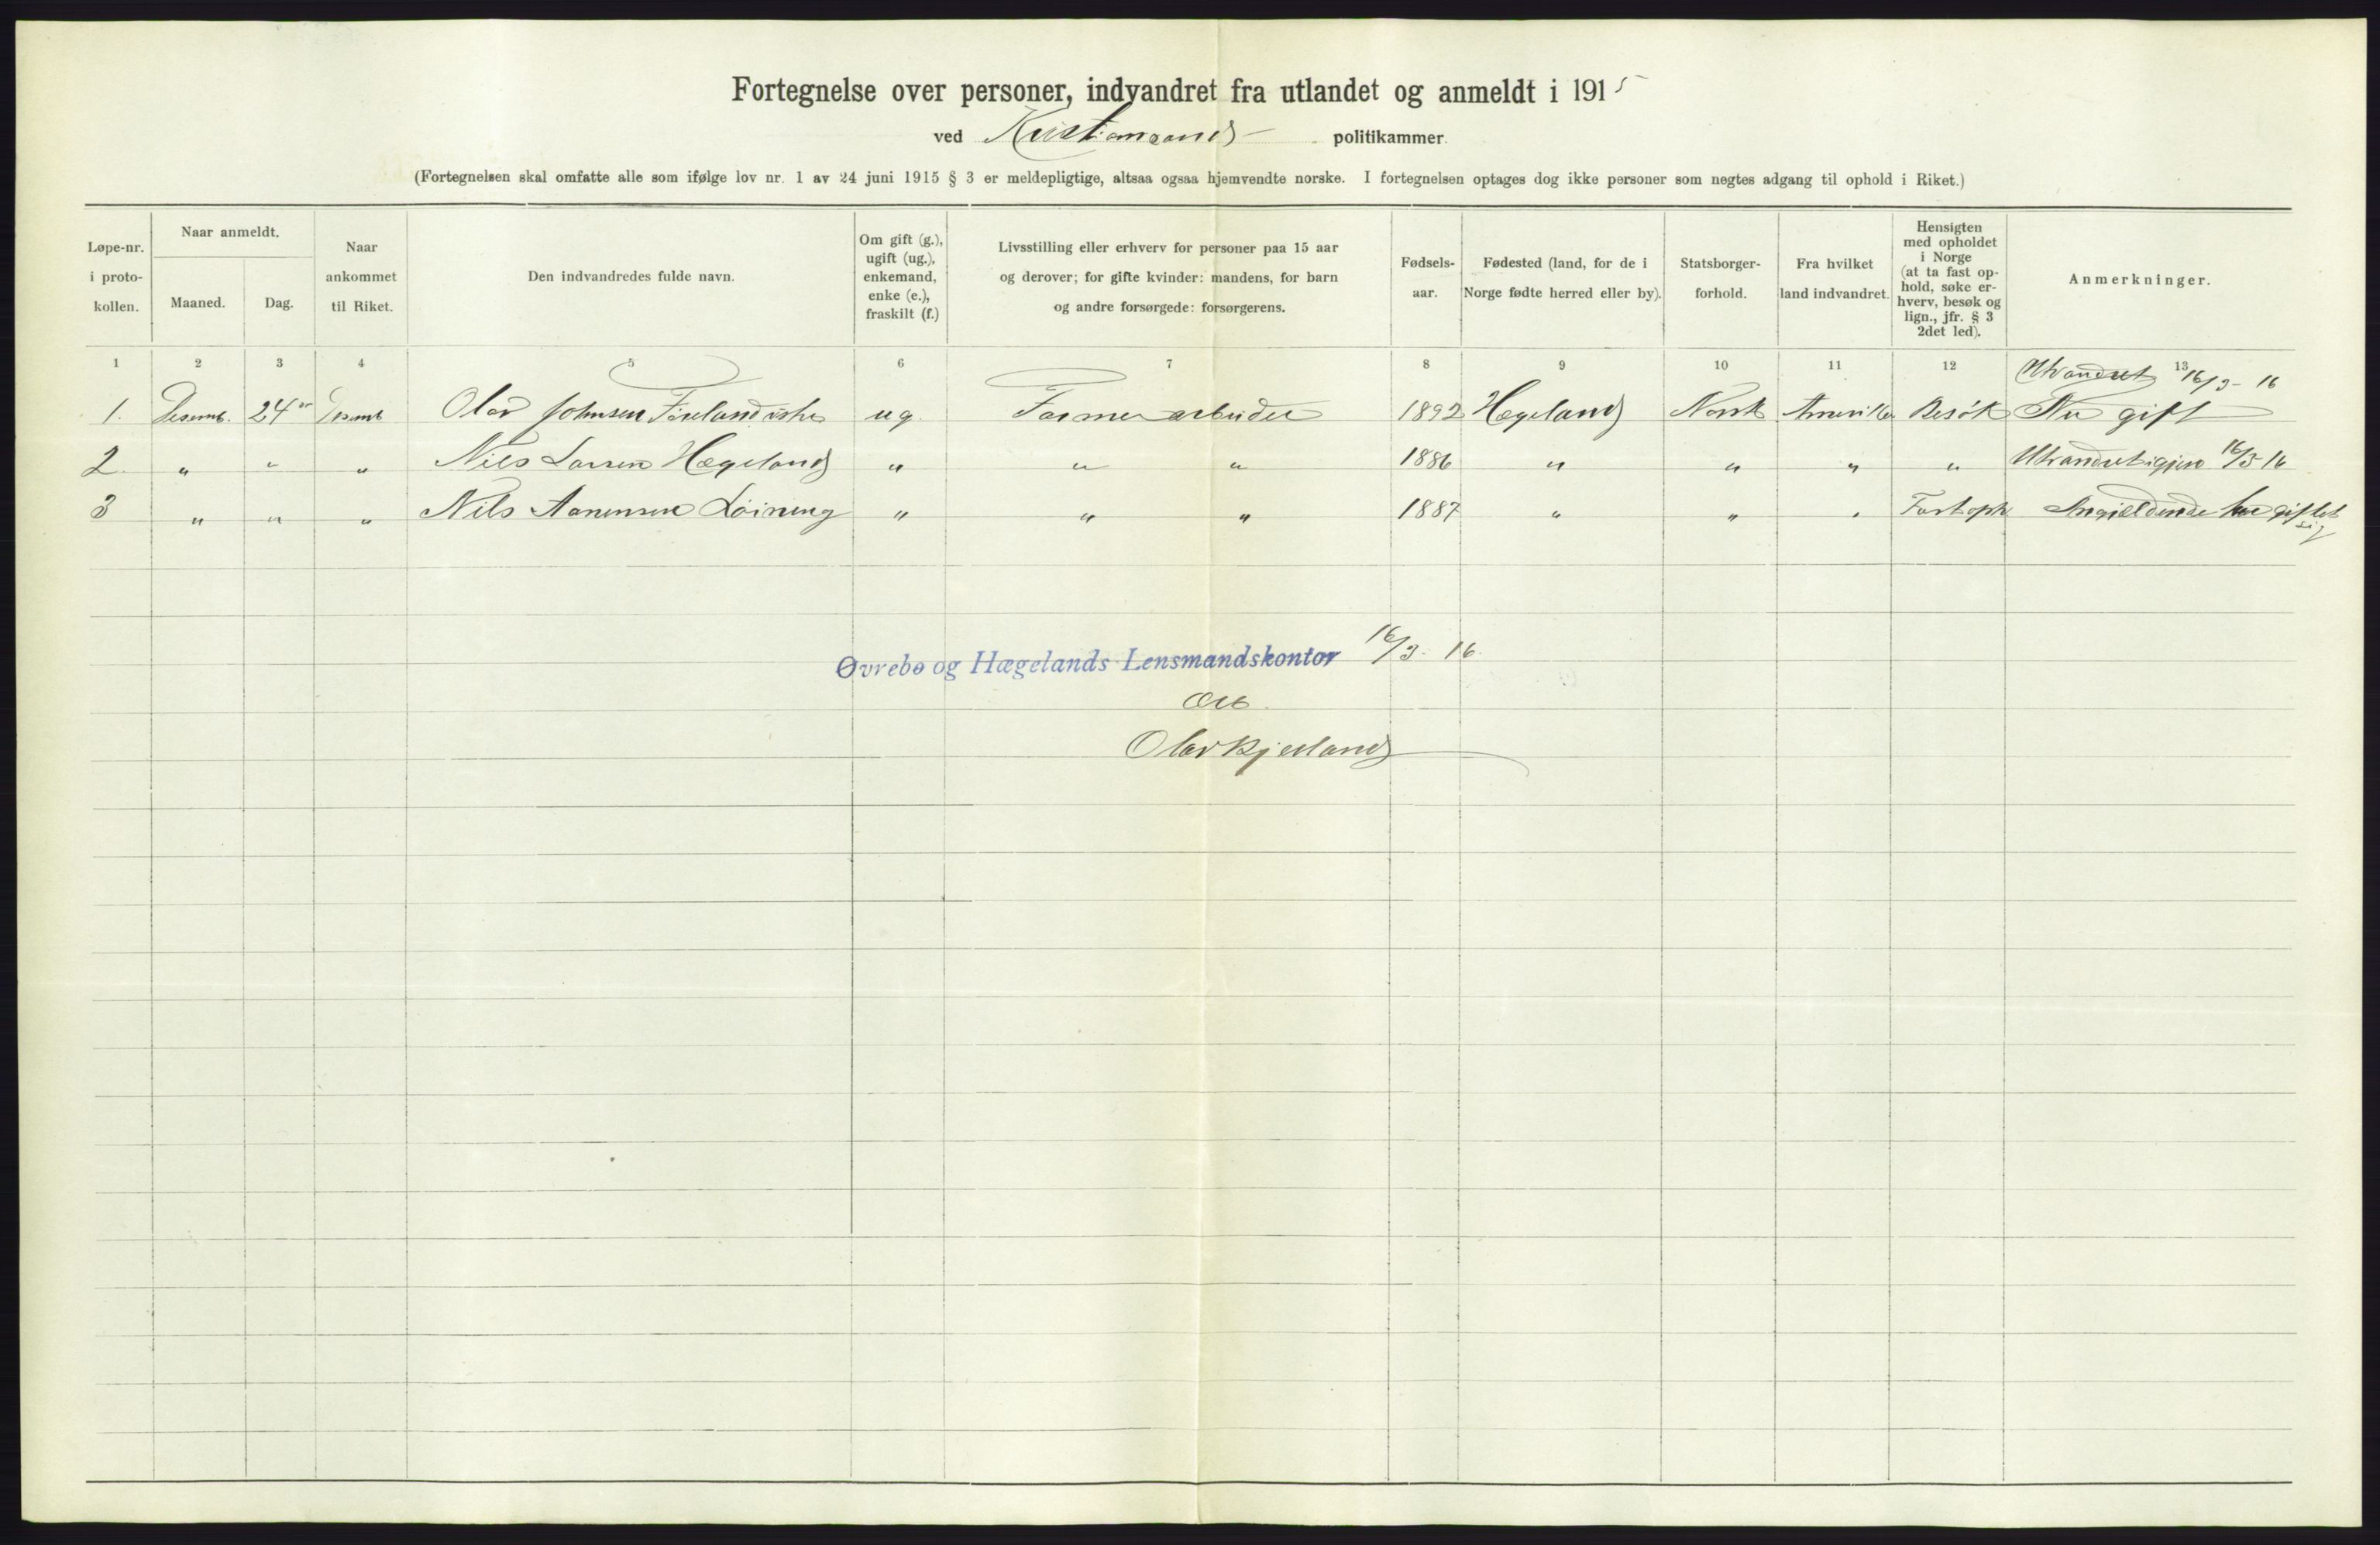 Fortegnelse over personer, indvandret fra utlandet og anmeldt i 1915
ved Kristiansands politikammer.
(Fortegnelsen skal omfatte alle som ifølge lov nr. 1 av 24 juni 1915 § 3 er meldepligtige, altsaa ogsaa hjemvendte norske. I fortegnelsen optages dog ikke personer som negtes adgang til ophold i Riket.)
Løpe-nr. i proto-kollen.
Naar anmeldt.
Maaned. Dag.
Naar ankommet til Riket.
Den indvandredes fulde navn.
Om gift (g.), ugift (ug.), enkemand, enke (e.), fraskilt (f.)
Livsstilling eller erhverv for personer paa 15 aar og derover; for gifte kvinder: mandens, for barn og andre forsørgede: forsørgerens.
Fødsels-aar.
Fødested (land, for de i Norge fødte herred eller by).
Statsborger-forhold.
Fra hvilket land indvandret.
Hensigten med opholdet i Norge (at ta fast op-hold, søke er-hverv, besøk og lign., jfr. § 3 2det led).
Anmerkninger.
1 2 3 4 5 6 7 8 9 10 11 12 13
Utvandret 16/3-16
1. Desemb. 24 Desemb Olav Johnsen Føreland ug. Farmerarbeider 1892 Hægeland Norsk Amerika Besøk Nu gift
2 " " " Nils Larsen Hægeland " " " 1886 " " " " Utvandret igjen 16/3 16
3 " " " Nils Aanensen Løining " " " 1887 " " " Fast oph giftet sig
Øvrebø og Hægelands Lensmandskontor 16/3-16.
Olav Kjelland